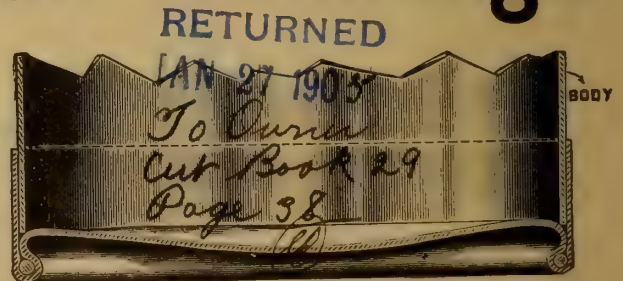 RETURNED
JAN 27 1905
BODY
To Owner
Cut Book 29
Page 38